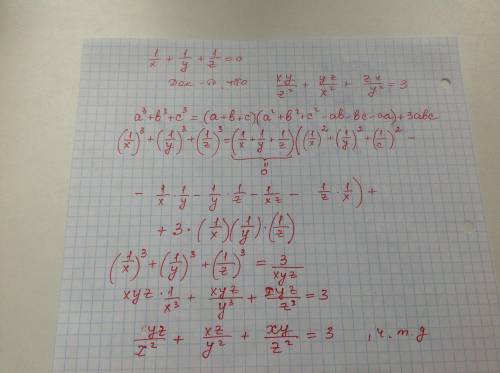 1/x + 1/y + 1/z = 0
Док-ть, что xy/z² + yz/x² + zx/y² = 3
a³ + b³ + c³ = (a+b+c)(a² + b² + c² - ab - bc - ca) + 3abc
(1/x)³ + (1/y)³ + (1/z)³ = (1/x + 1/y + 1/z) ((1/x)² + (1/y)² + (1/c)² -
0
- 1/x · 1/y - 1/y · 1/z - 1/xz - 1/z · 1/x) +
+ 3 · (1/x) (1/y) · (1/z)
(1/x)³ + (1/y)³ + (1/z)³ = 3/xyz
xyz · 1/x³ + xyz/y³ + xyz/z³ = 3
yz/x² + xz/y² + xy/z² = 3 , ч. т. д